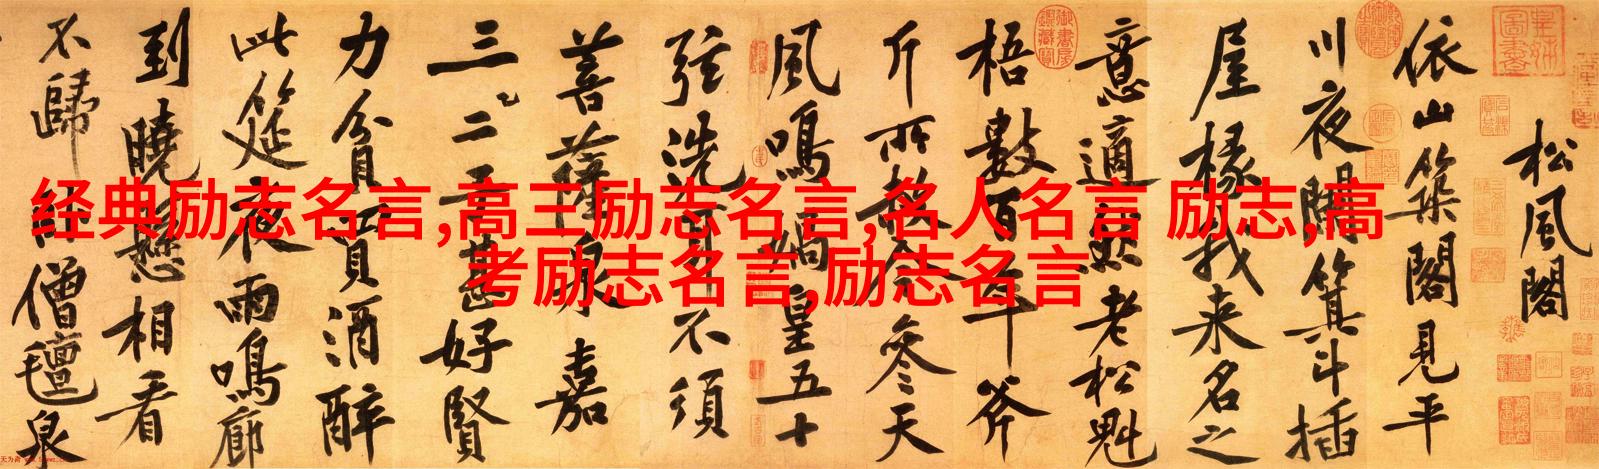 经典励志名言,高三励志名言,名人名言 励志,高
考励志名言,励志名言
松風閣
依山築閣見平
川夜闌箕斗插
屋椽我來名之
意適然老松魁
梧數百年斧
斤所赦今參天
風鳴媧皇五十
弦洗耳不須
菩薩泉嘉
三二子甚好賢
力貧買酒醉
此筵夜雨鳴廊
到曉懸相看
不歸臥僧氈泉
皇姊圖書
御書房鑑藏寶